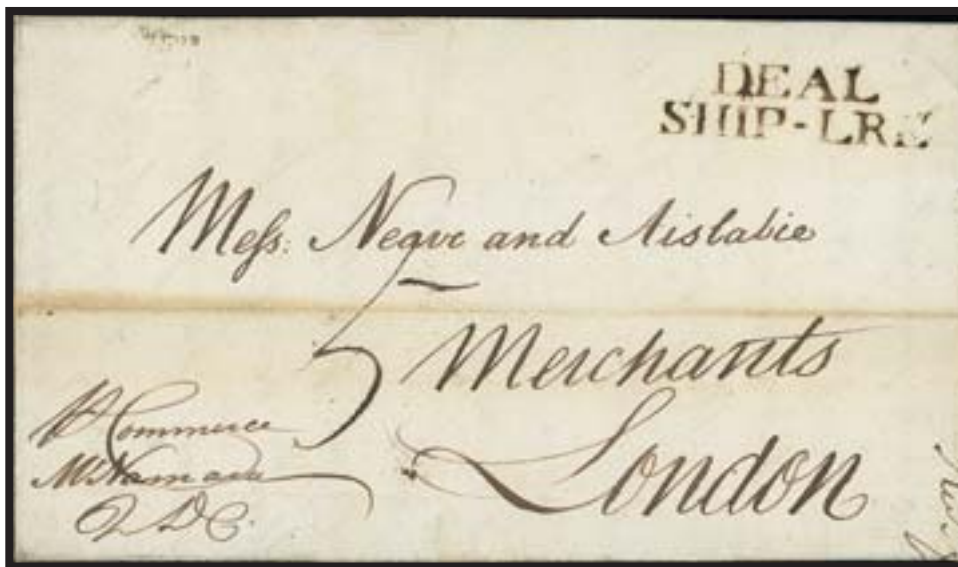 DEAL
SHIP-LRE
Mess: Neave and Aislabie
5
Merchants
London
Commerce
McNamara
Q D C.